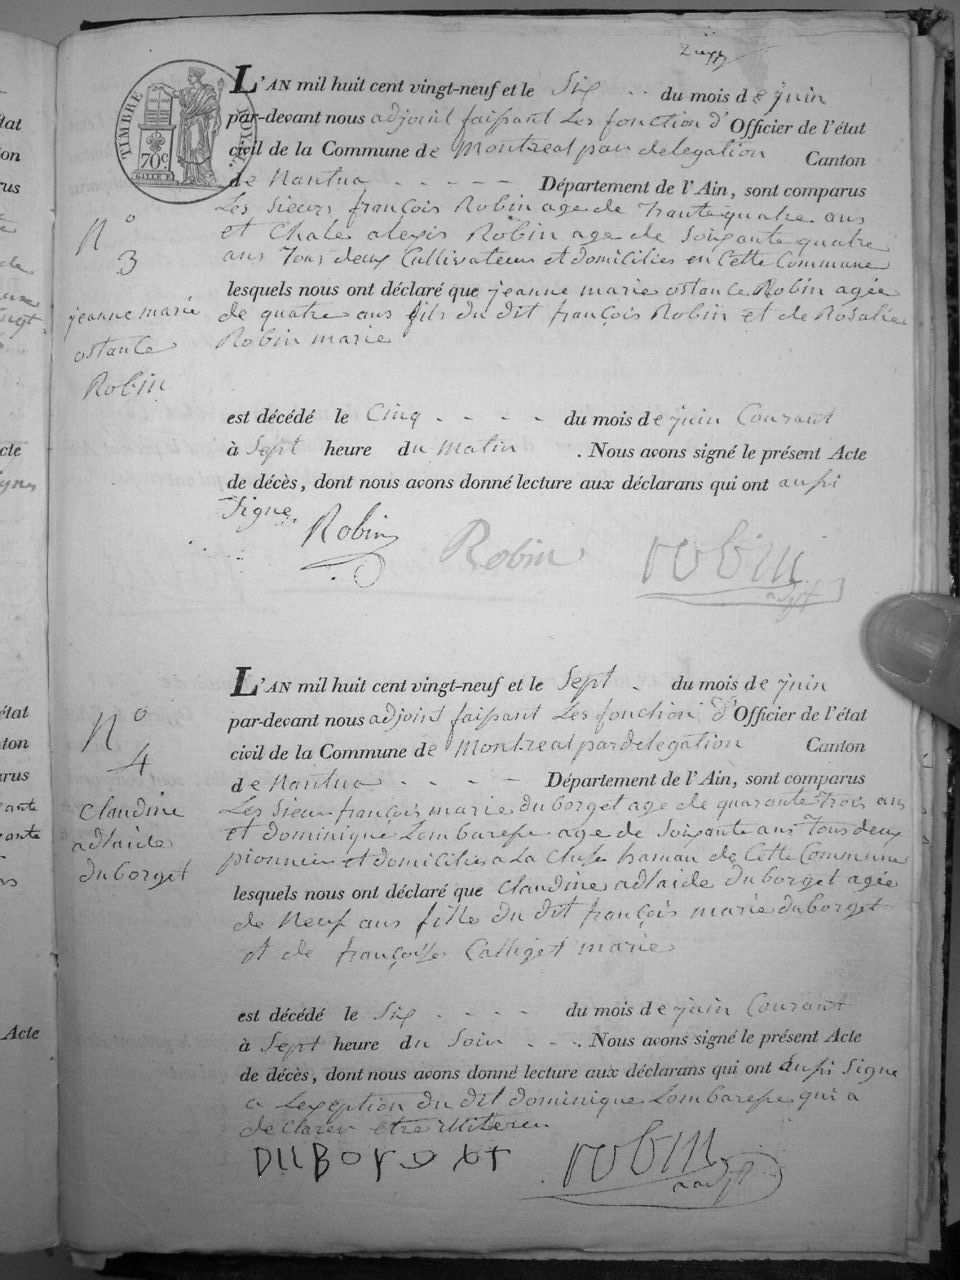 L'AN mil huit cent vingt-neuf et le Six du mois de juin
par-devant nous adjoint faissant Les fonction d'Officier de l'état
civil de la Commune de Montreal par delegation Canton
de Nantua - - - - - Département de l'Ain, sont comparus
Les Sieurs françois Robin age de trante quatre ans
et Charle alexis Robin age de Soixante quatre
ans Tous deux Cultivateurs et domiciliés en Cette Commune
lesquels nous ont déclaré que jeanne marie ostance Robin agée
de quatre ans fils du dit françois Robin et de Rosalie
Robin marie
est décédé le Cinq - - - - du mois de juin Courant
à Sept heure du matin . Nous avons signé le présent Acte
de décès, dont nous avons donné lecture aux déclarans qui ont aussi
Signe
Robin
Robin
robin
adjt
N° 3
jeanne marie
ostance
Robin
TIMBRE ROYAL
70c
L'AN mil huit cent vingt-neuf et le Sept - du mois de juin
par-devant nous adjoint faissant Les fonction d'Officier de l'état
civil de la Commune de Montreal par delegation Canton
de Nantua - - - - Département de l'Ain, sont comparus
Les Sieur françois marie duborget age de quarante trois ans
et dominique Lombaresse age de Soixante ans Tous deux
pionnier et domicilies a La Cluse hamau de Cette Commune
lesquels nous ont déclaré que Claudine adlaide duborget agée
de Neuf ans fille du dit françois marie duborget
et de françoise Calliget marie
est décédé le Six - - - - du mois de juin Courant
à Sept heure du Soir - - -. Nous avons signé le présent Acte
de décès, dont nous avons donné lecture aux déclarans qui ont aussi Signe
a Lexeption du dit dominique Lombaresse qui a
declarer etre illiteree
robin
adjt
N° 4
Claudine
adlaide
duborget
état
ton
rus
Acte